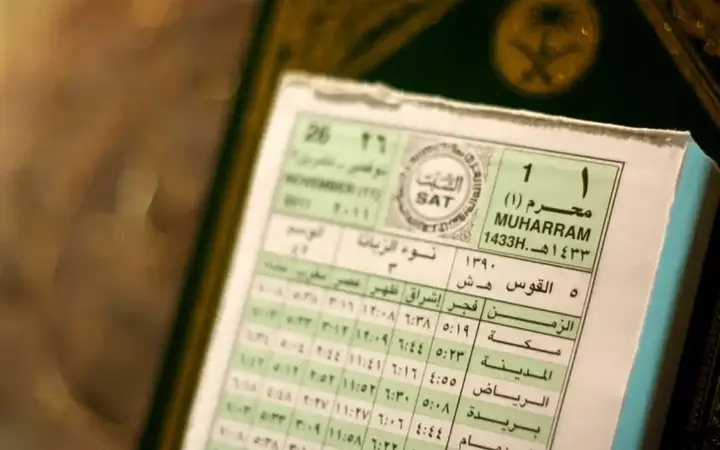 26 ٢٦
نوفمبر - تشرين٢
NOVEMBER (11)
2011 ٢٠١١
السَّبت
SAT
1 ١
محرم (١)
MUHARRAM
1433H. ١٤٣٣هـ
الوسم
٤٢
نوء الزبانا
٣
١٣٩٠
٥ القوس هـ ش
الزمن فجر إشراق ظهر عصر مغرب عشاء
مكة ٥:١٩ ٦:٣٨ ١٢:٠٨ ٣:١٦ ٥:٣٨ ٧:٠٨
المدينة ٥:٢٣ ٦:٤٤ ١٢:٠٩ ٣:١٢ ٥:٣٣ ٧:٠٣
الرياض ٤:٥٥ ٦:١٦ ١١:٤١ ٢:٤٤ ٥:٠٤ ٦:٣٤
بريدة ٥:٠٨ ٦:٣٠ ١١:٥٢ ٢:٥٢ ٥:١٢ ٦:٤٢
٤:٤٤ ٦:٠٦ ١١:٢٧ ٢:٢٧ ٤:٤٨ ٦:١٨
٦:٢٢ ١١:٥٨ ٥:٣٣ ٧:٠٣